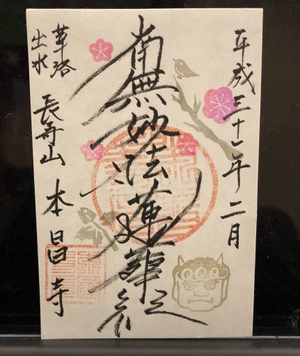 平成三十一年二月
南無妙法蓮華経
華洛
出水
長壽山 本昌寺